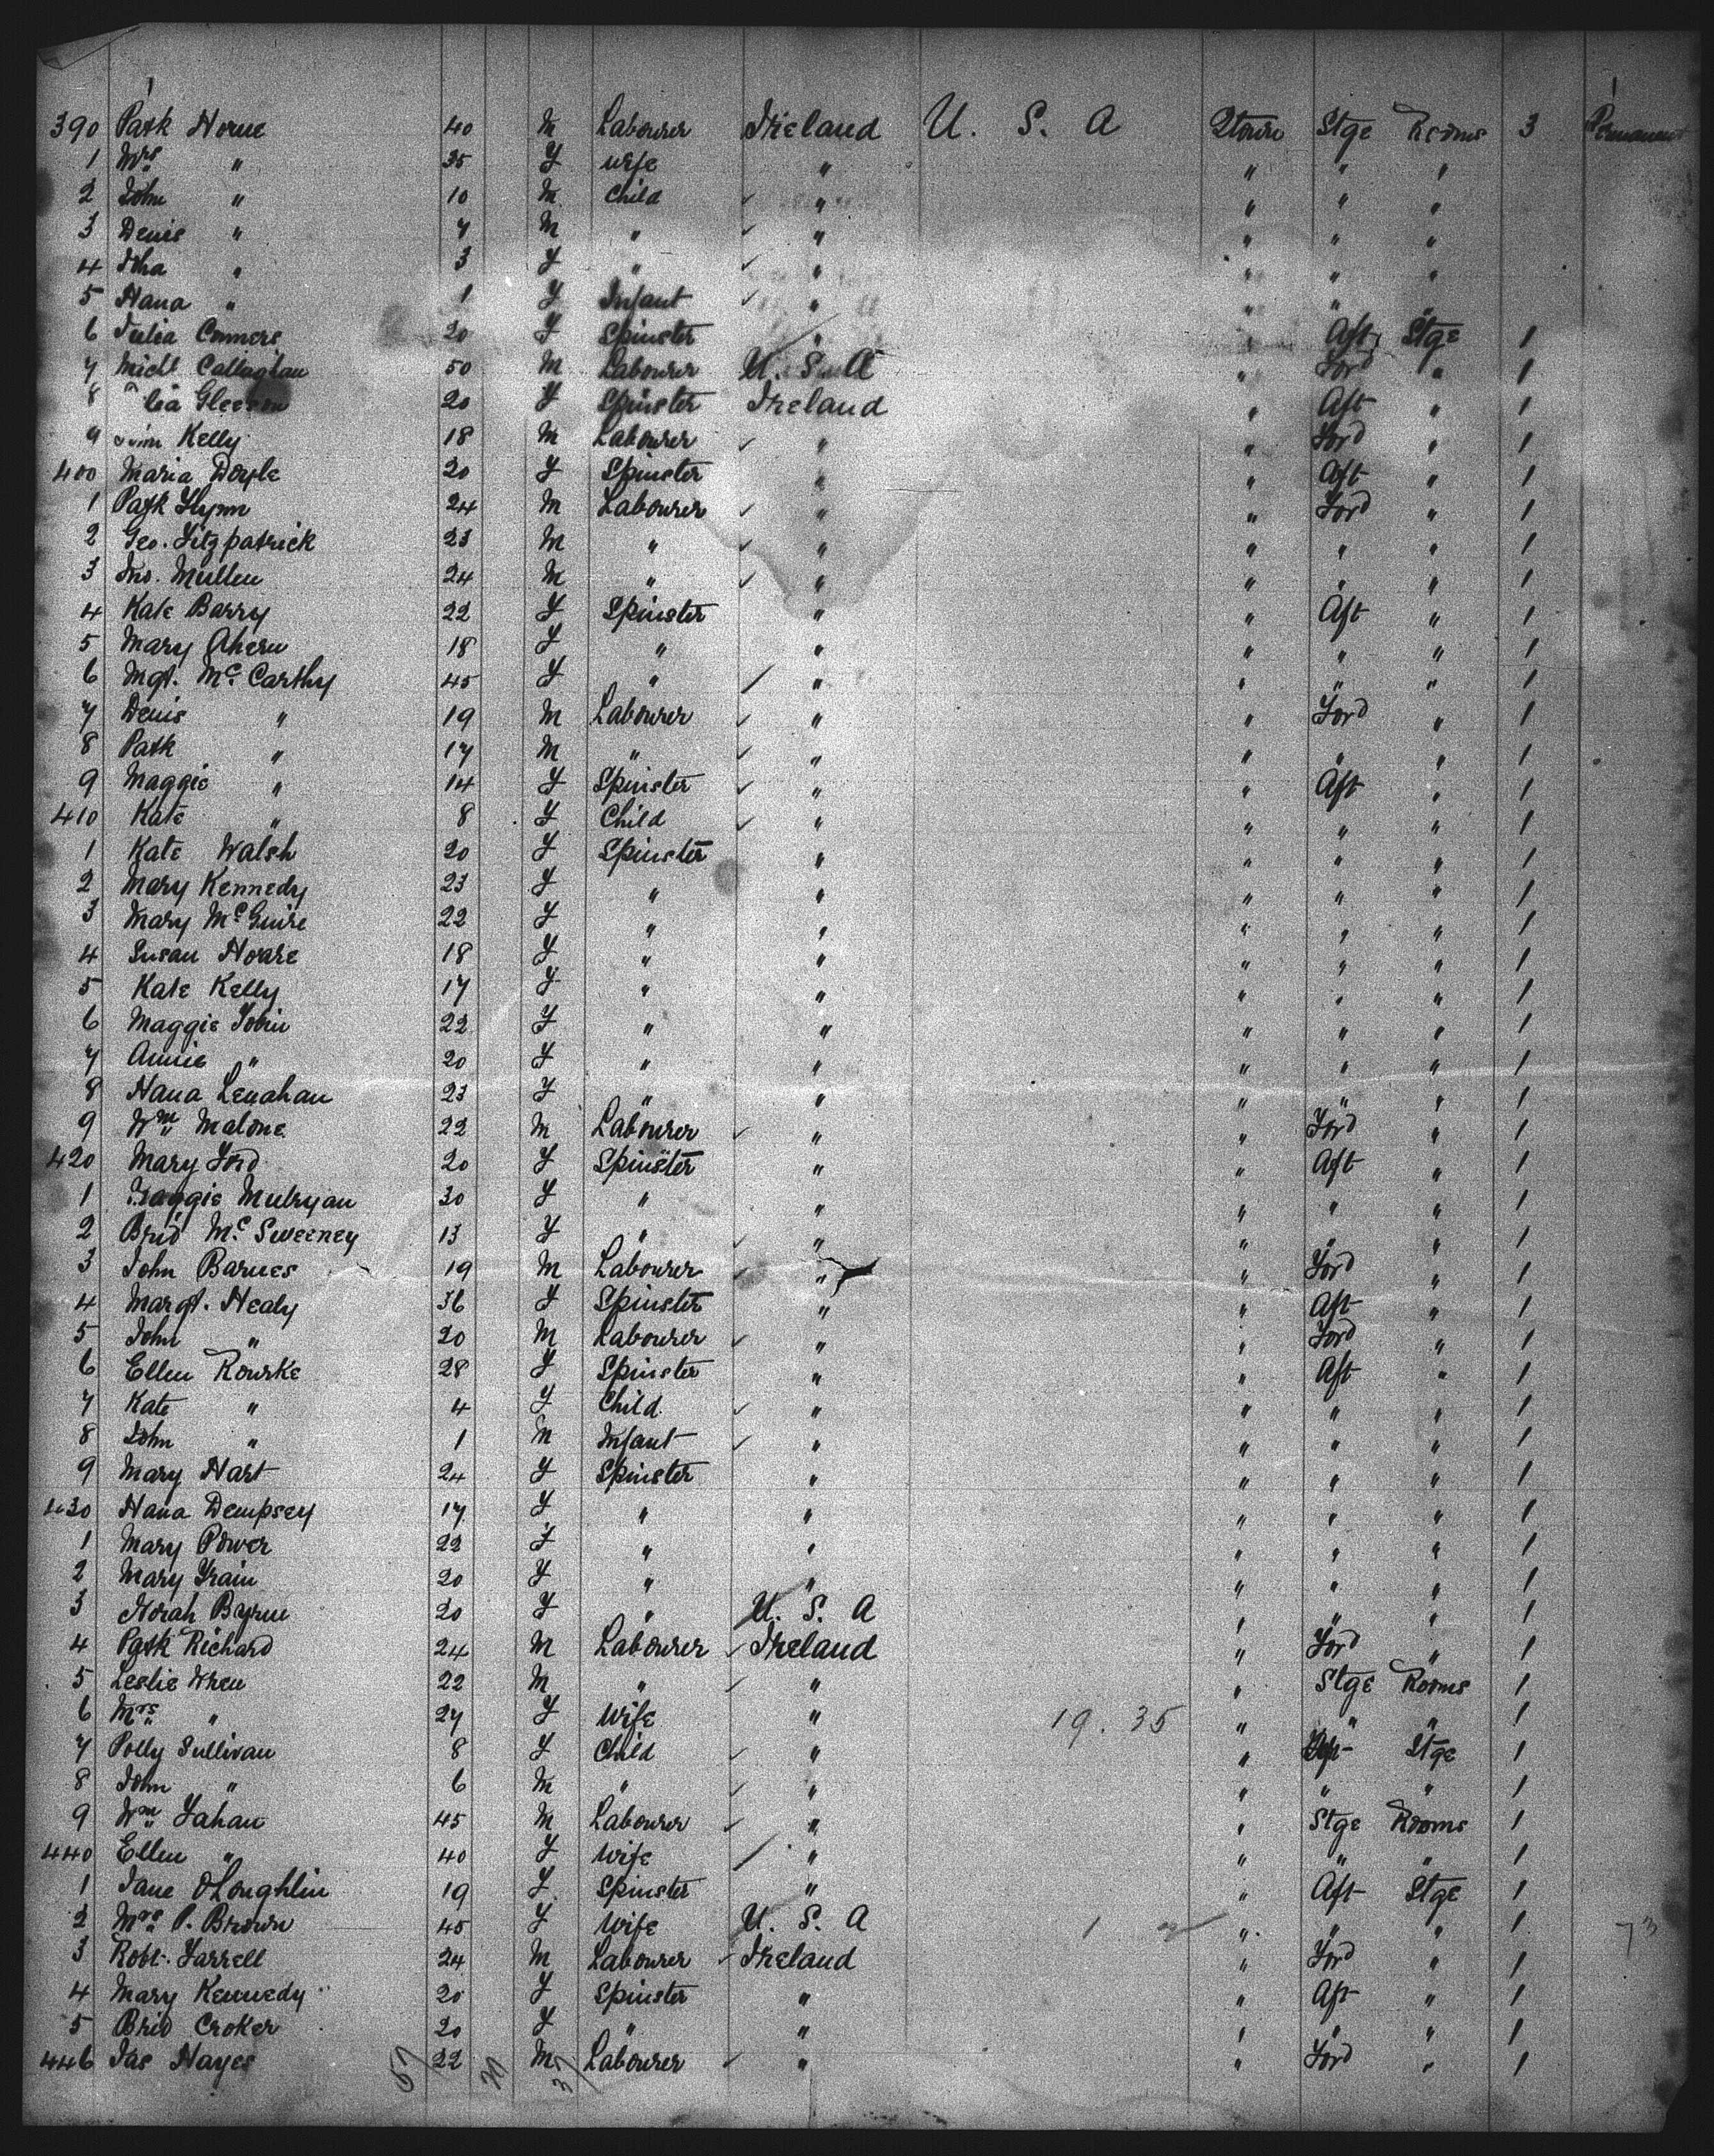 390 Patk Horne 40 M Labourer Ireland U. S. A Qtown Stge Rooms 3 Permanent
1 Mrs " 35 F wife " " " "
2 John " 10 M Child " " " "
3 Denis " 7 M " " " " "
4 Joha " 3 F " " " " "
5 Hana " 1 F Infant " " " "
6 Julia Conners 20 F Spinster " " Aft Stge 1
7 Michl Callaghan 50 M Labourer U. S. A " Ford " 1
8 Gleeson 20 F Spinster Ireland " Aft " 1
9 Kelly 18 M Labourer " " Ford " 1
400 Maria Doyle 20 F Spinster " " Aft " 1
1 Patk Flynn 24 M Labourer " " Ford " 1
2 Geo. Fitzpatrick 23 M " " " " " 1
3 Jno. Mullen 24 M " " " " " 1
4 Kate Barry 22 F Spinster " " Aft " 1
5 Mary Ahern 18 F " " " " " 1
6 Mgt. McCarthy 45 F " " " " " 1
7 Denis " 19 M Labourer " " Ford " 1
8 Patk " 17 M " " " " " 1
9 Maggie " 14 F Spinster " " Aft " 1
410 Kate " 8 F Child " " " " 1
1 Kate Walsh 20 F Spinster " " " " 1
2 Mary Kennedy 23 F " " " " " 1
3 Mary McGuire 22 F " " " " " 1
4 Susan Hoare 18 F " " " " " 1
5 Kate Kelly 17 F " " " " " 1
6 Maggie Tobin 22 F " " " " " 1
7 Annie " 20 F " " " " " 1
8 Hana Lenahan 23 F " " " " " 1
9 Wm Malone 22 M Labourer " " Ford " 1
420 Mary Ford 20 F Spinster " " Aft " 1
1 Maggie Mulryan 30 F " " " " " 1
2 Brid McSweeney 13 F " " " " " 1
3 John Barnes 19 M Labourer " " Ford " 1
4 Margt. Healy 36 F Spinster " " Aft " 1
5 John " 20 M Labourer " " Ford " 1
6 Ellen Rourke 28 F Spinster " " Aft " 1
7 Kate " 4 F Child " " " " 1
8 John " 1 M Infant " " " " 1
9 Mary Hart 24 F Spinster " " " " 1
430 Hana Dempsey 17 F " " " " " 1
1 Mary Power 22 F " " " " " 1
2 Mary Train 20 F " " " " " 1
3 Norah Byrne 20 F " U. S. A " " " 1
4 Patk Richard 24 M Labourer Ireland " Ford " 1
5 Leslie Wren 22 M " " " Stge Rooms 1
6 Mrs " 27 F Wife " 19. 35 " " " 1
7 Polly Sullivan 8 F Child " " Aft Stge 1
8 John " 6 M " " " " " 1
9 Wm Fahan 45 M Labourer " " Stge Rooms 1
440 Ellen " 40 F Wife " " " " 1
1 Jane OLoughlin 19 F Spinster " " Aft Stge 1
2 Mrs P. Brown 45 F Wife U. S. A " " " 1
3 Robt. Farrell 24 M Labourer Ireland " Ford " 1
4 Mary Kennedy 20 F Spinster " " Aft " 1
5 Brid Croker 20 F " " " " " 1
446 Jas Hayes 22 M Labourer " " Ford " 1